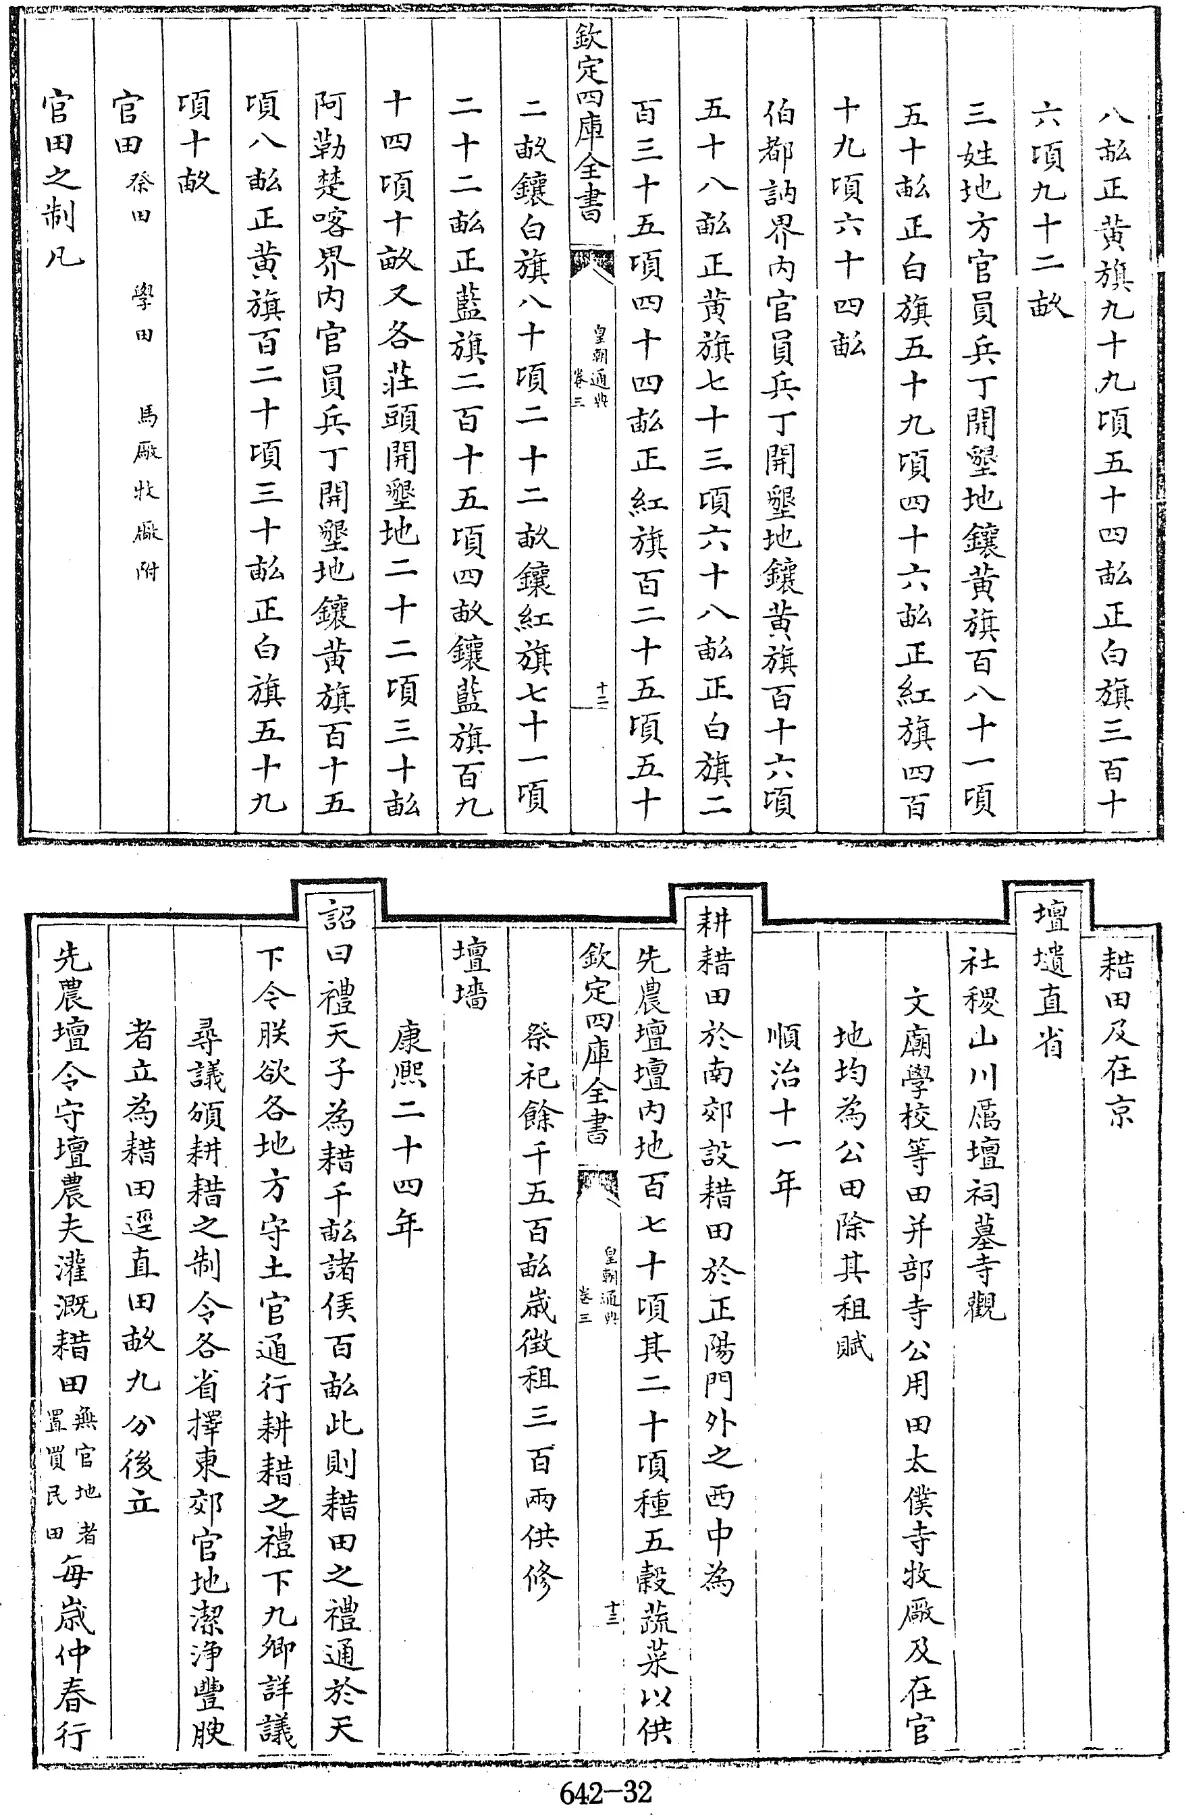 八畝正黄旗九十九頃五十四畝正白旗三百十
六頃九十二畝
三姓地方官員兵丁開墾地鑲黄旗百八十一頃
五十畝正白旗五十九頃四十六畝正紅旗四百
十九頃六十四畝
伯都訥界内官員兵丁開墾地鑲黄旗百十六頃
五十八畝正黄旗七十三頃六十八畝正白旗二
百三十五頃四十四畝正紅旗百二十五頃五十
欽定四庫全書
皇朝通典
卷三
十二
二畝鑲白旗八十頃二十二畝鑲紅旗七十一頃
二十二畝正藍旗二百十五頃四畝鑲藍旗百九
十四頃十畝又各莊頭開墾地二十二頃三十畝
阿勒楚喀界内官員兵丁開墾地鑲黄旗百十五
頃八畝正黄旗百二十頃三十畝正白旗五十九
頃十畝
官田 祭田 學田 馬厰牧厰附
官田之制凡
耤田及在京
壇壝直省
社稷山川厲壇祠墓寺觀
文廟學校等田并部寺公用田太僕寺牧厰及在官
地均為公田除其租賦
順治十一年
耕耤田於南郊設耤田於正陽門外之西中為
先農壇壇内地百七十頃其二十頃種五穀蔬菜以供
欽定四庫全書
皇朝通典
卷三
十三
祭祀餘千五百畝歲徵租三百兩供修
壇墻
康熙二十四年
詔曰禮天子為耤千畝諸侯百畝此則耤田之禮通於天
下令朕欲各地方守土官通行耕耤之禮下九卿詳議
尋議頒耕耤之制令各省擇東郊官地潔浄豐腴
者立為耤田逕直田畝九分後立
先農壇令守壇農夫灌溉耤田無官地者置買民田每歲仲春行
642-32